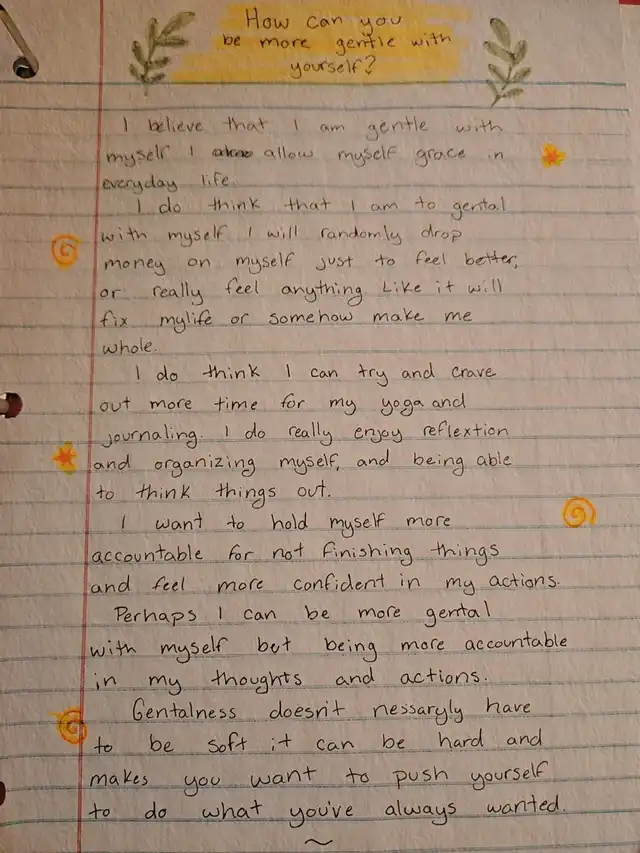 How can you
be more gentle with
yourself?
I believe that I am gentle with
myself I allow myself grace in
everyday life.
I do think that I am to gental
with myself I will randomly drop
money on myself just to feel better,
or really feel anything. Like it will
fix mylife or somehow make me
whole.
I do think I can try and crave
out more time for my yoga and
journaling. I do really enjoy reflextion
and organizing myself, and being able
to think things out.
I want to hold myself more
accountable for not finishing things
and feel more confident in my actions.
Perhaps I can be more gental
with myself but being more accountable
in my thoughts and actions.
Gentalness doesn't nessaryly have
to be soft it can be hard and
makes you want to push yourself
to do what you've always wanted.
~